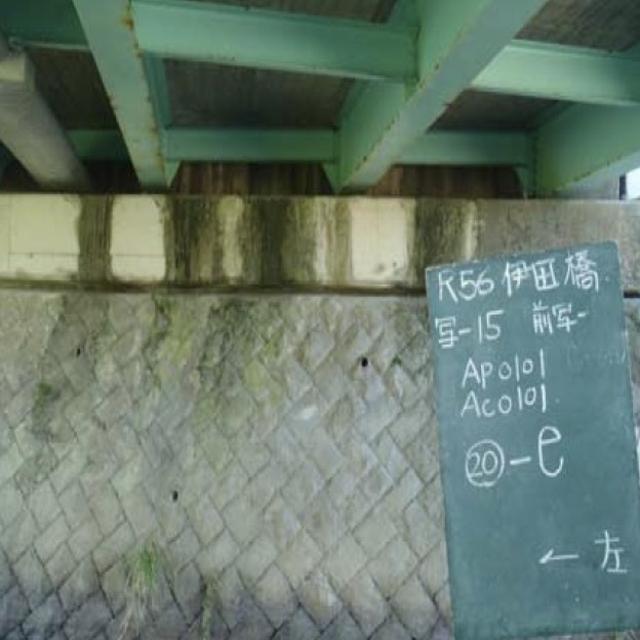 K56 伊田橋
写-15 前写-
Ap0101
Ac0101
⑳-e
← 左